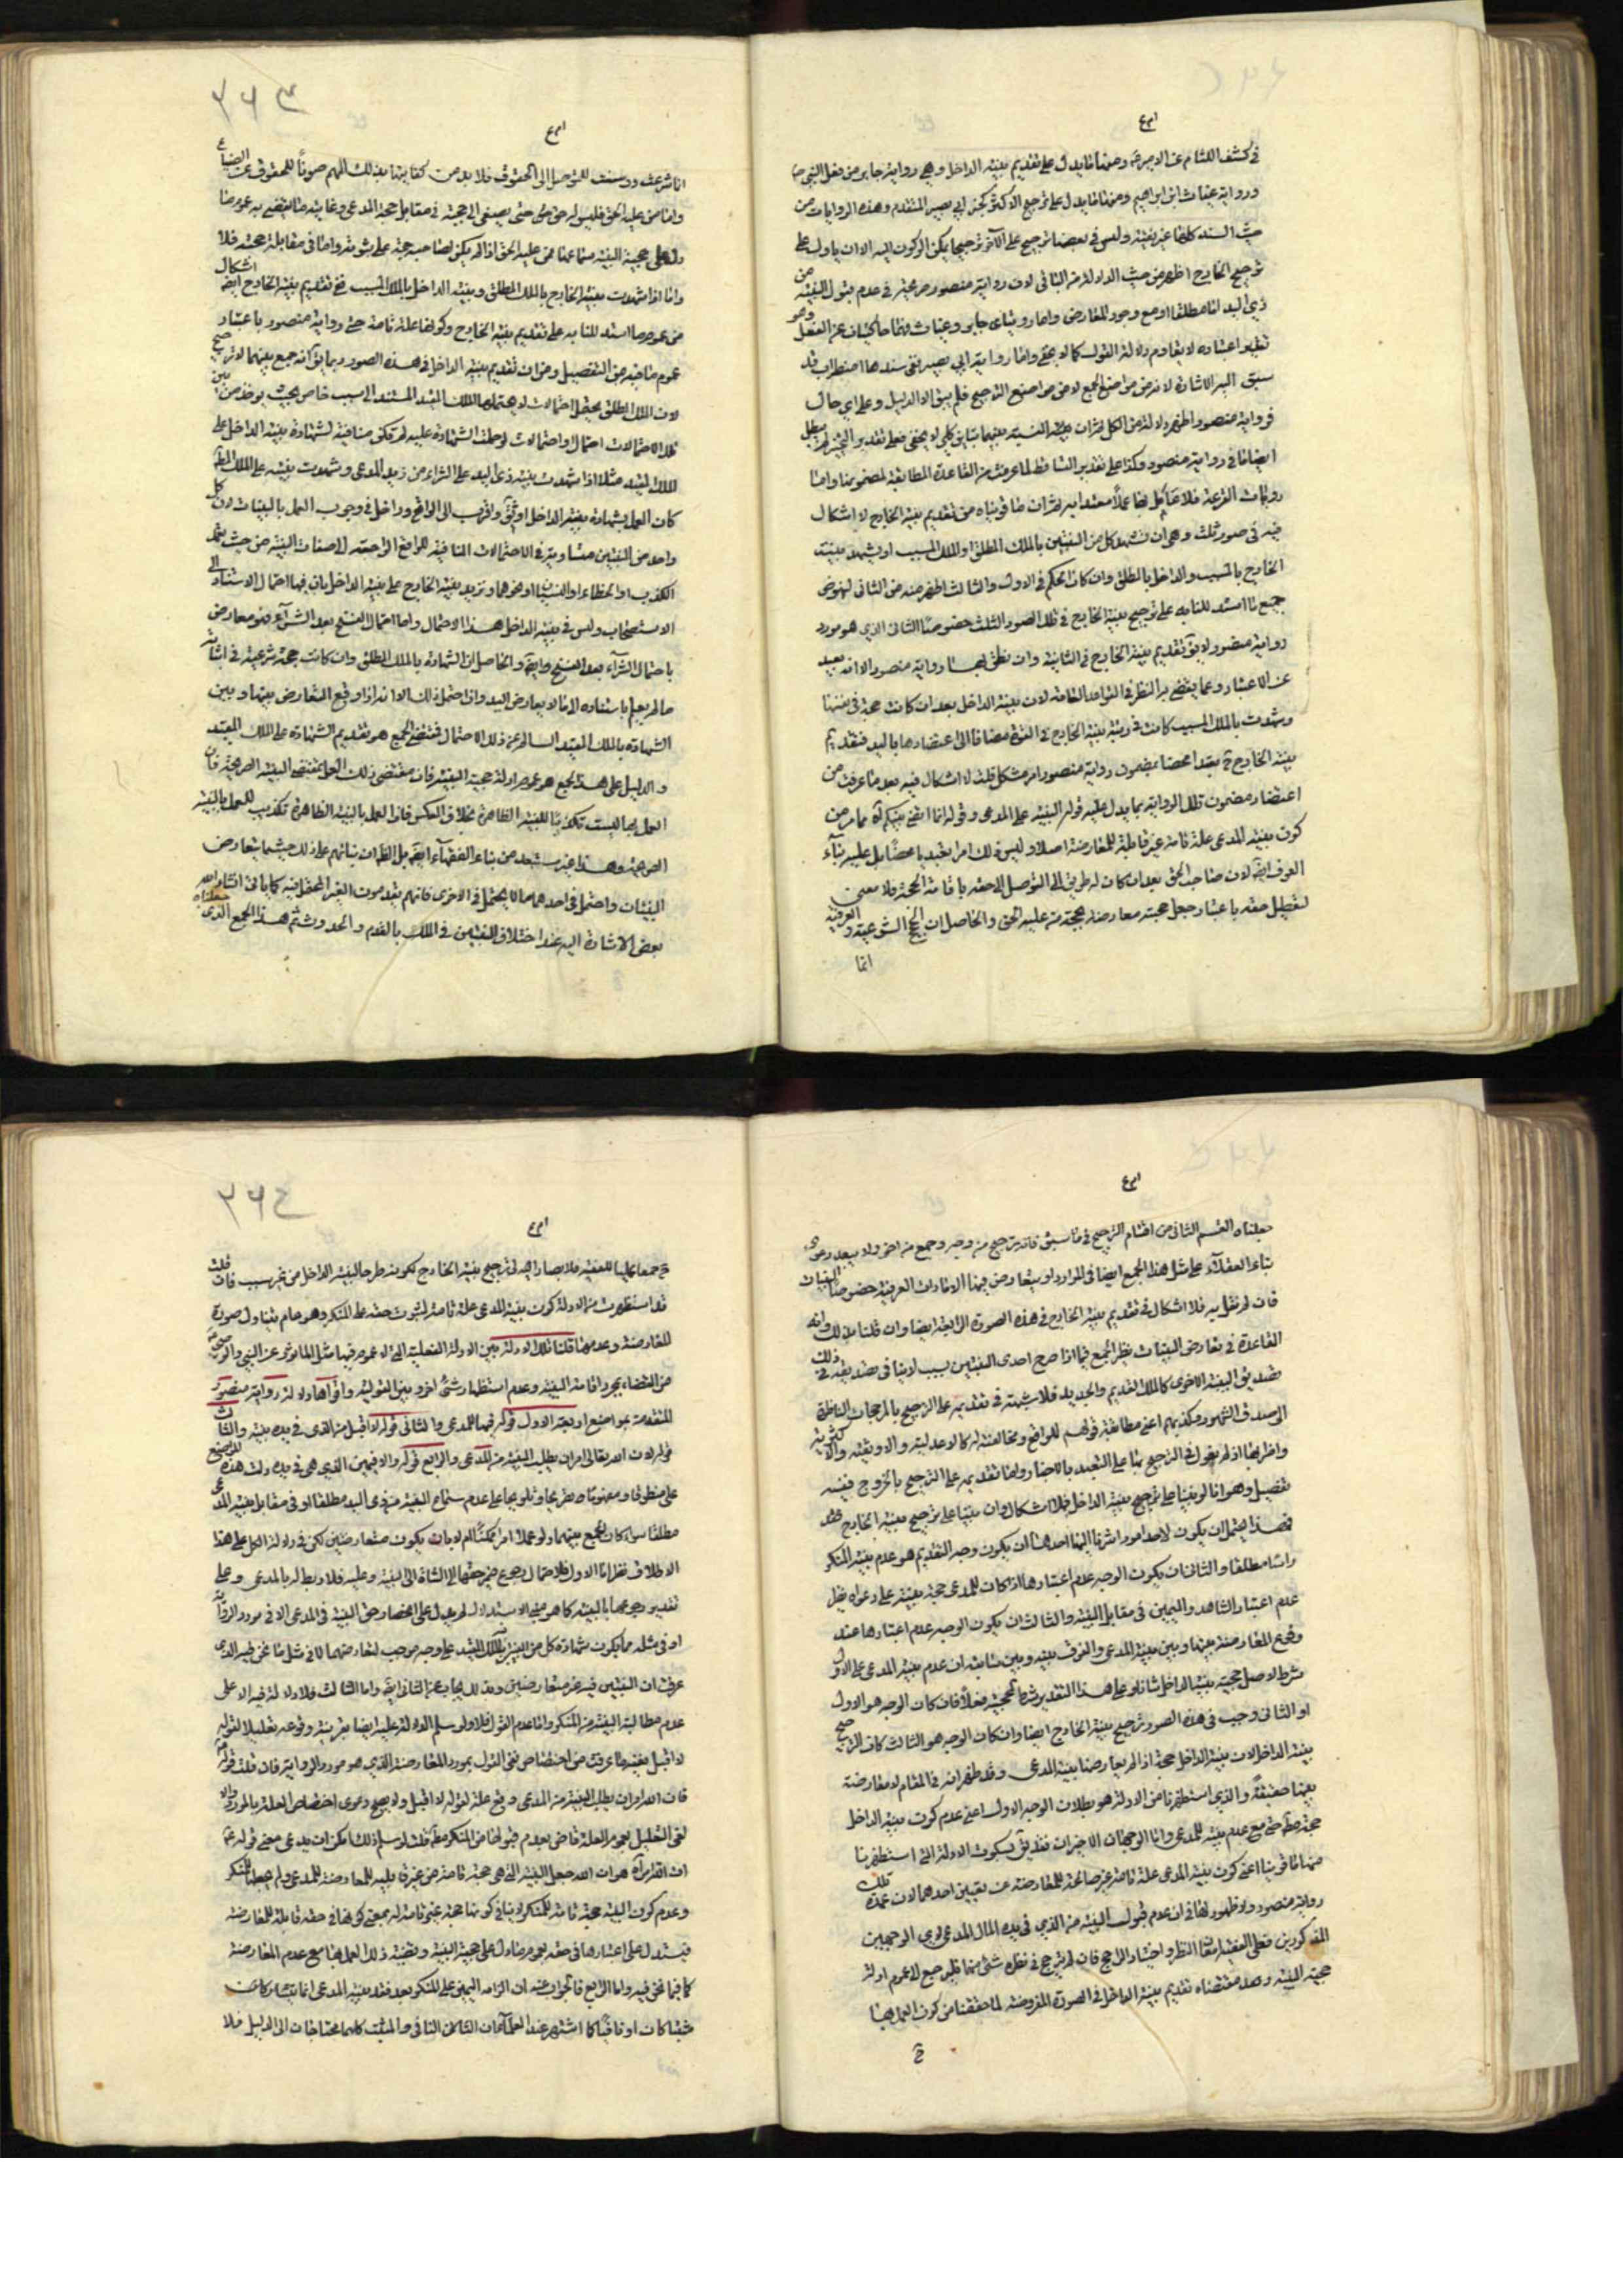 في كشف اللثام عن الاميرة ومنها ما يدل على تقديم بينة الداخل وهي رواية جابر من فعل النبي ص
ورواية غياث ابن ابراهيم ومنها ما يدل على ترجيح الاكثر كخبر ابي بصير المتقدم وهذه الروايات من
حيث السند كلها غير نقية وليس في بعضها ترجيح على الآخر ترجيحا يمكن الركون اليه الا ان ما دل على
ترجيح الخارج اظهر من حيث الدلالة من الثاني لان رواية منصور صريحة في عدم قبول البينة من
ذي اليد اما مطلقا او مع وجود المعارض واما روايتاى جابر وغياث فهما حاكيتان عن الفعل وهو
سبق اليه الاشارة لانه من مواضع الجمع لا من مواضع الترجيح فلم يبق الا الدليل وعلى اي حال
ايضا ما في رواية منصور وكذا على تقدير التساقط لما عرفت من القاعدة المطابقة لمضمونها واما
فيه في صور ثلث وهي ان تشهد كل من البينتين بالملك المطلق او الملك المسبب او يشهد بينة
الخارج بالمسبب والداخل بالمطلق وان كان الحكم في الاول والثالث اظهر منه من الثاني لنهوض
جميع ما استند للنا به على ترجيح بينة الخارج في تلك الصور الثلث خصوصا الثاني الذي هو مورد
رواية منصور لا يق تقديم بينة الخارج في الثانية وان نطق بها رواية منصور الا انه بعيد
عن الاعتبار وعما يقتضيه النظر في القواعد العامة لان بينة الداخل بعد ان كانت حجة في نفسها
وشهدت بالملك المسبب كانت في رتبة بينة الخارج في القوة مضافا الى اعتضادها باليد فتقديم
بينة الخارج ح تعبدا محضا بمضمون رواية منصور امر مشكل قلت لا اشكال فيه بعد ما عرفت من
اعتضاد مضمون تلك الرواية بما يدل عليه قوله البينة على المدعي وقوله انما اقضي بينكم اه مما مر من
كون بينة المدعي علة تامة غير قابلة للمعارضة اصلا وليس ذلك امرا تعبديا محضا بل عليه بناء
العرف ايضا لان صاحب الحق بعد ان كان له طريق الى التوصل الى حقه باقامة الحجة فلا معنى
لتعطيل حقه باعتبار جعل حجته معارضة بحجة من عليه الحق والحاصل ان الحجج الشرعية والعرفية
انما
انما شرعت ورسمت للتوصل الى الحقوق فلا بد من كفايتها بذلك المهم صونا للحقوق عن الضياع
واما من عليه الحق فليس له حق حتى يصغى الى حجته في مقابل حجة المدعي وغاية ما يقتضيه عموم ما
دل على حجية البينة سماعها ممن عليه الحق اذا لم يكن لصاحبه حجة على ثبوته واما في مقابلة حجته فلا
واما اذا شهدت بينة الخارج بالملك المطلق وبينة الداخل بالملك المسبب ففي تقديم بينة الخارج ايضا اشكال
من عموم ما استند للنا به على تقديم بينة الخارج وكونها علة تامة حتى رواية منصور باعتبار
عموم ما فيه من التفصيل ومن ان تقديم بينة الداخل في هذه الصور ربما يق انه جمع بينهما لا ترجيح
لان الملك المطلق يحتمل احتمالات لا يحتملها الملك المقيد المستند الى سبب خاص بحيث يوخذ من بين
تلك الاحتمالات احتمال واحتمالات لو حملت الشهادة عليه لم تكن منافية لشهادة بينة الداخل على
الملك المقيد مثلا اذا شهدت بينة ذي اليد على الشراء من زيد المدعي وشهدت بينته على الملك المطلق
كان العمل بشهادة بينة الداخل اوثق واقرب الى الواقع وداخل في وجوب العمل بالبينات لان كل
واحد من البينتين متساوية في الاحتمالات المنافية للواقع الراجعة الى صفات البينة من حيث تعمد
الكذب او الخطاء او النسيان او نحوها وتزيد بينة الخارج على بينة الداخل بان فيها احتمال الاستناد الى
الاستصحاب وليس في بينة الداخل هذا الاحتمال واما احتمال الفسخ بعد الشراء فهو معارض
باحتمال الشراء بعد الفسخ وايضا والحاصل ان الشهادة بالملك المطلق وان كانت حجة شرعية في اثباته
ما لم يعلم باستناده الى ما لا يعارض اليد واذا احتمل ذلك الا انه اذا وقع التعارض بينها وبين
الشهادة بالملك المقيد السالم عن ذلك الاحتمال فمقتضى الجمع هو تقديم الشهادة على الملك المقيد
والدليل على هذا الجمع هو عموم ادلة حجية البينة فان مقتضى ذلك العمل بمقتضى البينة الصريحة فان
العمل بها ليست تكذيبا للبينة الظاهرة بخلاف العكس فان العمل بالبينة الظاهرة تكذيب للعمل بالبينة
الصريحة وهذا غير مستبعد من بناء الفقهاء ايضا بل الظاهر ان بنائهم على ذلك حيثما يتعارض
البينات واحتمل في احدهما ما لا يحتمل في الاخرى فانهم يقدمون الغير المحتمل فيه كما ياتي انشاء الله
بعض الاشارة اليه عند اختلاف البينتين في الملك بالقدم والحدوث ثم هذا الجمع الذي جعلناه
جعلناه القسم الثاني من اقسام الترجيح في ما سبق فانه ترجيح من وجه وجمع من اخر ولا يبعد دعوى
بناء العقلاء على مثل هذا الجمع ايضا في الموارد او بتعارض فيها الامارات العرفية خصوصا البينات
فان لم نقل به فلا اشكال في تقديم بينة الخارج في هذه الصورة الرابعة ايضا وان قلنا بذلك وانه
القاعدة في تعارض البينات نظر الجمع فيما اذا صرح احدى البينتين بسبب لا ينافي تصديقه في ذلك
تصديق البينة الاخرى كالملك القديم والجديد فلا شبهة في تقديمه على الترجيح بالمرجحات الناظرة
الى صدق الشهود وكذبهم اعني مطابقة قولهم للواقع ومخالفته له كالاعدلية والاوثقية والاكثرية
تفصيل وهو انا لو بنينا على ترجيح بينة الداخل فلا اشكال وان بنينا على ترجيح بينة الخارج فقد
فهذا يحتمل ان يكون لاحد امور اشرنا اليها احدها ان يكون وجه التقديم هو عدم بينة المنكر
راسا مطلقا والثاني ان يكون الوجه عدم اعتبارها اذا كانت للمدعي حجة بينة على دعواه نظير
عدم اعتبار الشاهد واليمين في مقابل البينة والثالث ان يكون الوجه عدم اعتبارها عند
وقوع المعارضة بينها وبين بينة المدعي والفرق بينه وبين سابقه ان عدم بينة المدعي على الاول
شرط لاصل حجية بينة الداخل شانا وعلى هذا التقدير شرط للحجية فعلا فان كان الوجه هو الاول
او الثاني وجب في هذه الصور ترجيح بينة الخارج ايضا وان كان الوجه هو الثالث كان الترجيح
بينة الداخل لان بينة الداخل حجة اذا لم يعارضها بينة المدعي وقد ظهر انه في المقام لا معارضة
بينهما حقيقة والذي استظهرنا من الادلة هو بطلان الوجه الاول اعني عدم كون بينة الداخل
حجة مط حتى مع عدم بينة للمدعي واما الوجهان الاخيران فقد يق بسكوت الادلة التي استظهرنا
منها ما قوينا اعني كون بينة المدعي علة تامة غير صالحة للمعارضة عن تعيين احدهما لان عمدة تلك
رواية منصور ولا ظهور لها في ان عدم قبول البينة من الذي في يده المال المدعى لاي الوجهين
المذكورين فعلى الفقيه امعان النظر واختيار الراجح فان لم يترجح في نظره شئ منهما فليرجع الى عموم ادلة
حجية البينة وهذا مقتضاه تقديم بينة الداخل في الصورة المفروضة لما حققنا من كون العمل بها
ح
ح جمعا عمليا للبينتين فلا يصار اليه في ترجيح بينة الخارج لكونه طرحا لبينة الداخل من غير سبب فان قلت
قد استظهرت من الادلة كون بينة المدعي علة تامة لثبوت حقه على المنكر وهو عام يتناول صورة
المعارضة وعدمها قلنا تلك الادلة بين الادلة الفعلية التي لا عموم فيها مثل الماثور عن النبي والوصي
من القضاء بمجرد اقامة البينة وعدم استظهار شئ اخر وبين القولية واقواها دلالة رواية منصور
المتقدمة بمواضع اربعة الاول قوله فيها للمدعي والثاني قوله لا اقبل من الذي في يده بينة والثالث
قوله لان الله تعالى امر ان يطلب البينة من المدعي والرابع قوله والا فيمين الذي هي في يده دلت هذه المواضع
على منطوقا ومفهوما تصريحا وتلويحا على عدم سماع البينة من ذي اليد مطلقا او في مقابل بينة المدعي
مطلقا سواء كان الجمع بينهما ولو عملا امرا ممكنا ام لا بان يكون متعارضين لكن في دلالة الكل على هذا
الاطلاق نظر اما الاول فلاحتمال رجوع ضمير حقها الى الشاة لا الى البينة وعليه فلا ربط له بالمدعي وعلى
تقدير رجوعها بالبينة كما هو مبنى الاستدلال لم يدل على انحصار حق البينة في المدعي الا في مورد الرواية
او في مثله مما يكون شهادة كل من البينتين بالملك المقيد على وجه موجب لتعارضهما لا في مثل ما نحن فيه الذي
عرفت ان البينتين فيه غير متعارضتين وبذلك يجاب عن الثاني ايضا واما الثالث فلا دلالة فيه الا على
عدم مطالبة البينة من المنكر واما عدم القبول فلا ولو سلم الدلالة عليه ايضا بقرينة وقوعه تعليلا لقوله
لا اقبل بينة ما عرفت من اختصاص نفي القبول بمورد المعارضة الذي هو مورد الرواية فان قلت قوله
فان الله امر ان يطلب البينة من المدعي وقع علة لقوله لا اقبل ولا يصح دعوى اختصاص العلة بالمورد والا
لغى التعليل بعموم العلة قاض بعدم قبولها من المنكر مط قلت لو سلم ذلك امكن ان يدعى معنى قوله ع
ان الله امر اه هو ان الله جعل البينة التي هي حجة تامة من غير قابلية للمعارضة للمدعي ولم يجعلها للمنكر
وعدم كون البينة حجة تامة للمنكر لا ينافي كونها حجة غير تامة له بمعنى كونها في حقه قابلة للمعارضة
فيستدل على اعتبارها في حقه بعموم ما دل على حجية البينة وقضية ذلك العمل بها مع عدم المعارضة
كما فيما نحن فيه واما الرابع فالجواب عنه ان الزامه اليمين على المنكر بعد فقد بينة المدعي انما يتشاء كان من
مثبتا كان او نافيا كما اشتهر عند العلماء ان الثاني النافي والمثبت كلهما محتاجان الى الدليل فلا